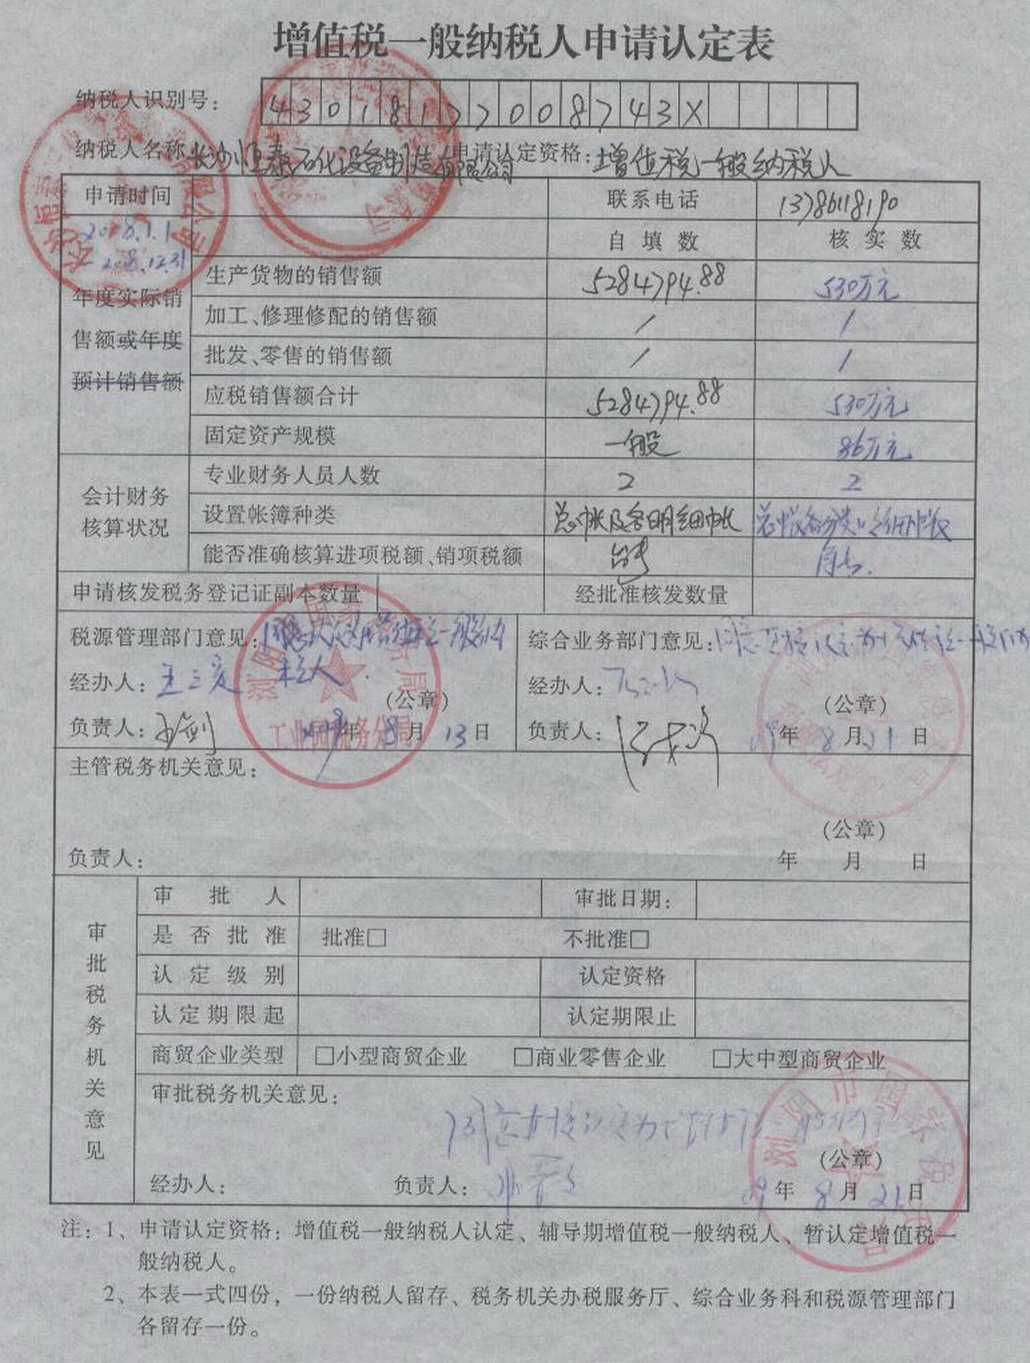 增值税一般纳税人申请认定表
纳税人识别号： 43018177008743X
纳税人名称 长沙恒泰石化设备制造有限公司 申请认定资格：增值税一般纳税人
申请时间 联系电话 13786118190
2008.1.1 自填数 核实数
-2008.12.31 生产货物的销售额 5284794.88 530万元
年度实际销售额或年度预计销售额
加工、修理修配的销售额 / /
批发、零售的销售额 / /
应税销售额合计 5284794.88 530万元
固定资产规模 一般 86万元
会计财务核算状况
专业财务人员人数 2 2
设置帐簿种类 总帐及各明细帐
能否准确核算进项税额、销项税额 能
申请核发税务登记证副本数量 经批准核发数量
税源管理部门意见： 综合业务部门意见：
经办人： 经办人：
(公章) (公章)
负责人： 年 8月 13日 负责人： 09年 8月 21日
工业园税务分局
主管税务机关意见：
(公章)
负责人： 年 月 日
审批税务机关意见
审批人 审批日期：
是否批准 批准□ 不批准□
认定级别 认定资格
认定期限起 认定期限止
商贸企业类型 □小型商贸企业 □商业零售企业 □大中型商贸企业
审批税务机关意见：
(公章)
经办人： 负责人： 09年 8月 21日
注：1、申请认定资格：增值税一般纳税人认定、辅导期增值税一般纳税人、暂认定增值税一
般纳税人。
2、本表一式四份，一份纳税人留存、税务机关办税服务厅、综合业务科和税源管理部门
各留存一份。